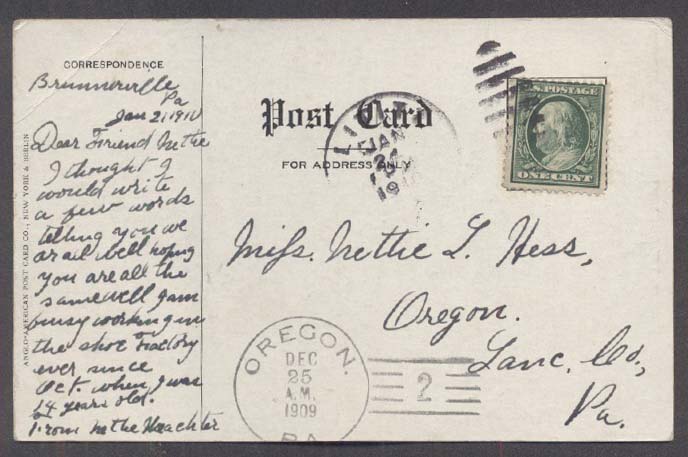 CORRESPONDENCE
Brunnerville
Pa
Jan 21 1910
Dear Friend Nettie
I thought I
would write
a few words
telling you we
ar all well hoping
you are all the
same well I am
busy working in
the shoe Factory
ever since
Oct. when I was
14 years old.
From Nettie
ANGLO-AMERICAN POST CARD CO., NEW YORK & BERLIN
Post Card
FOR ADDRESS ONLY
LITITZ
JAN
U.S. POSTAGE
ONE CENT
Miss. Nettie L. Hess,
Oregon.
Lanc. Co,
Pa.
OREGON.
DEC
25
A.M.
1909
PA.
2